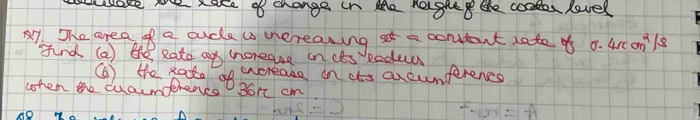 the rate of change in the height of the water level
Q7, The area of a circle is increasing at a constant rate of 0.4π cm²/s
Find (a) the Rate of increase in its radius
(b) the rate of increase in its circumference
when the circumference 36π cm